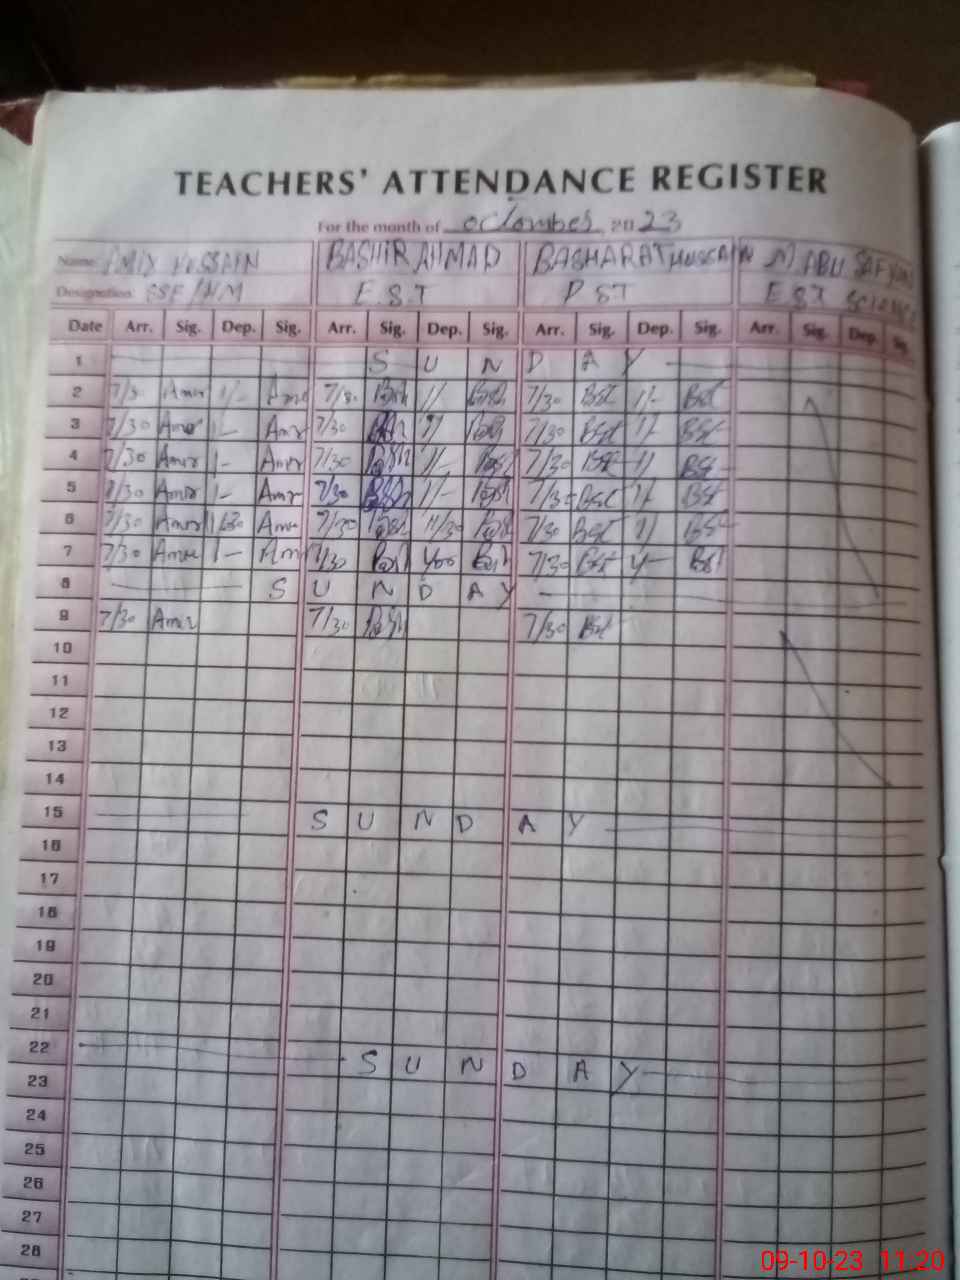 TEACHERS' ATTENDANCE REGISTER
For the month of octomber, 2023
Name: AMIR HUSSAIN BASHIR AHMAD BASHARAT HUSSAIN M ABU SAFYAN
Designation: SSE/HM E.S.T PST EST SCIENCE
Date Arr. Sig. Dep. Sig. Arr. Sig. Dep. Sig. Arr. Sig. Dep. Sig. Arr. Sig. Dep. Sig.
1 SUNDAY
2 7/30 Amir 1/- Amir 7/30 Bsh 1/- Bsh 7/30 Bst 1/- Bst
3 7/30 Amir 1- Amir 7/30 Bsh 1/ Bsh 7/30 Bst 1/- Bst
4 7/30 Amir 1- Amir 7/30 Bsh 1/- Bsh 7/30 Bst 1/ Bst
5 7/30 Amir 1- Amir 7/30 Bsh 1/- Bsh 7/30 Bst 1/- Bst
6 7/30 Amir Amir 7/30 Bsh 11/30 Bsh 7/30 Bst 1/ Bst
7 7/30 Amir 1- Amir 7/30 Bsh Bsh 7/30 Bst 1/- Bst
8 SUNDAY
9 7/30 Amir 7/30 Bsh 7/30 Bst
10
11
12
13
14
15 SUNDAY
16
17
18
19
20
21
22 SUNDAY
23
24
25
26
27
28
09-10-23 11:20